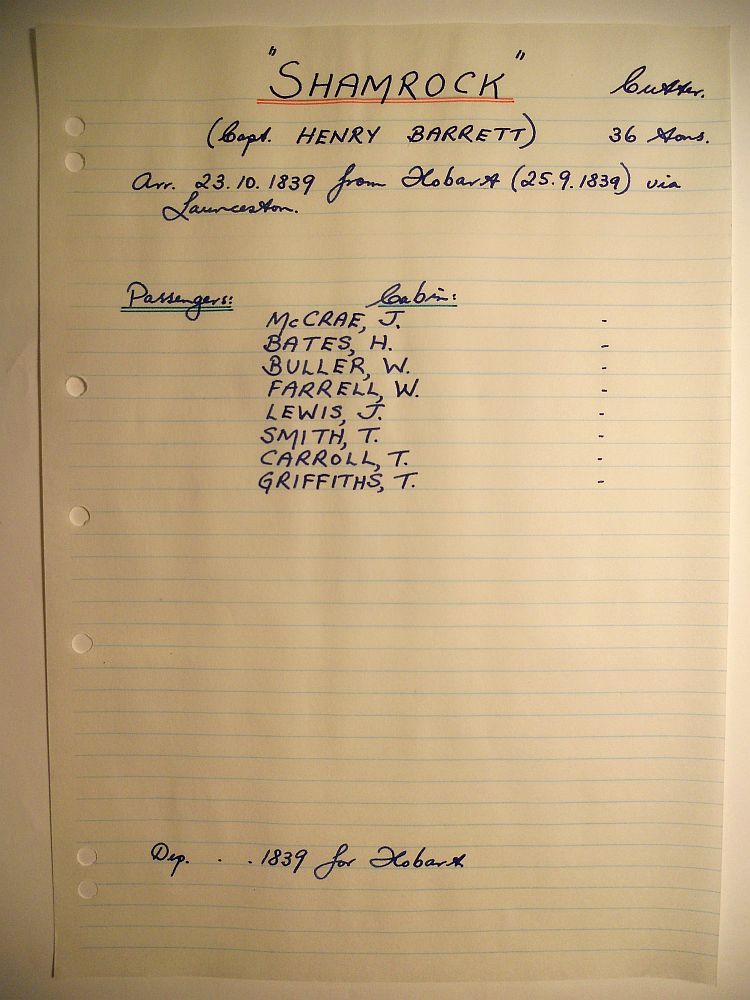 "SHAMROCK" Cutter.
(Capt. HENRY BARRETT) 36 tons.
Arr. 23.10.1839 from Hobart (25.9.1839) via
Launceston.
Passengers: Cabin:
McCRAE, J. -
BATES, H. -
BULLER, W. -
FARRELL, W. -
LEWIS, J. -
SMITH, T. -
CARROLL, T. -
GRIFFITHS, T. -
Dep. . . 1839 for Hobart